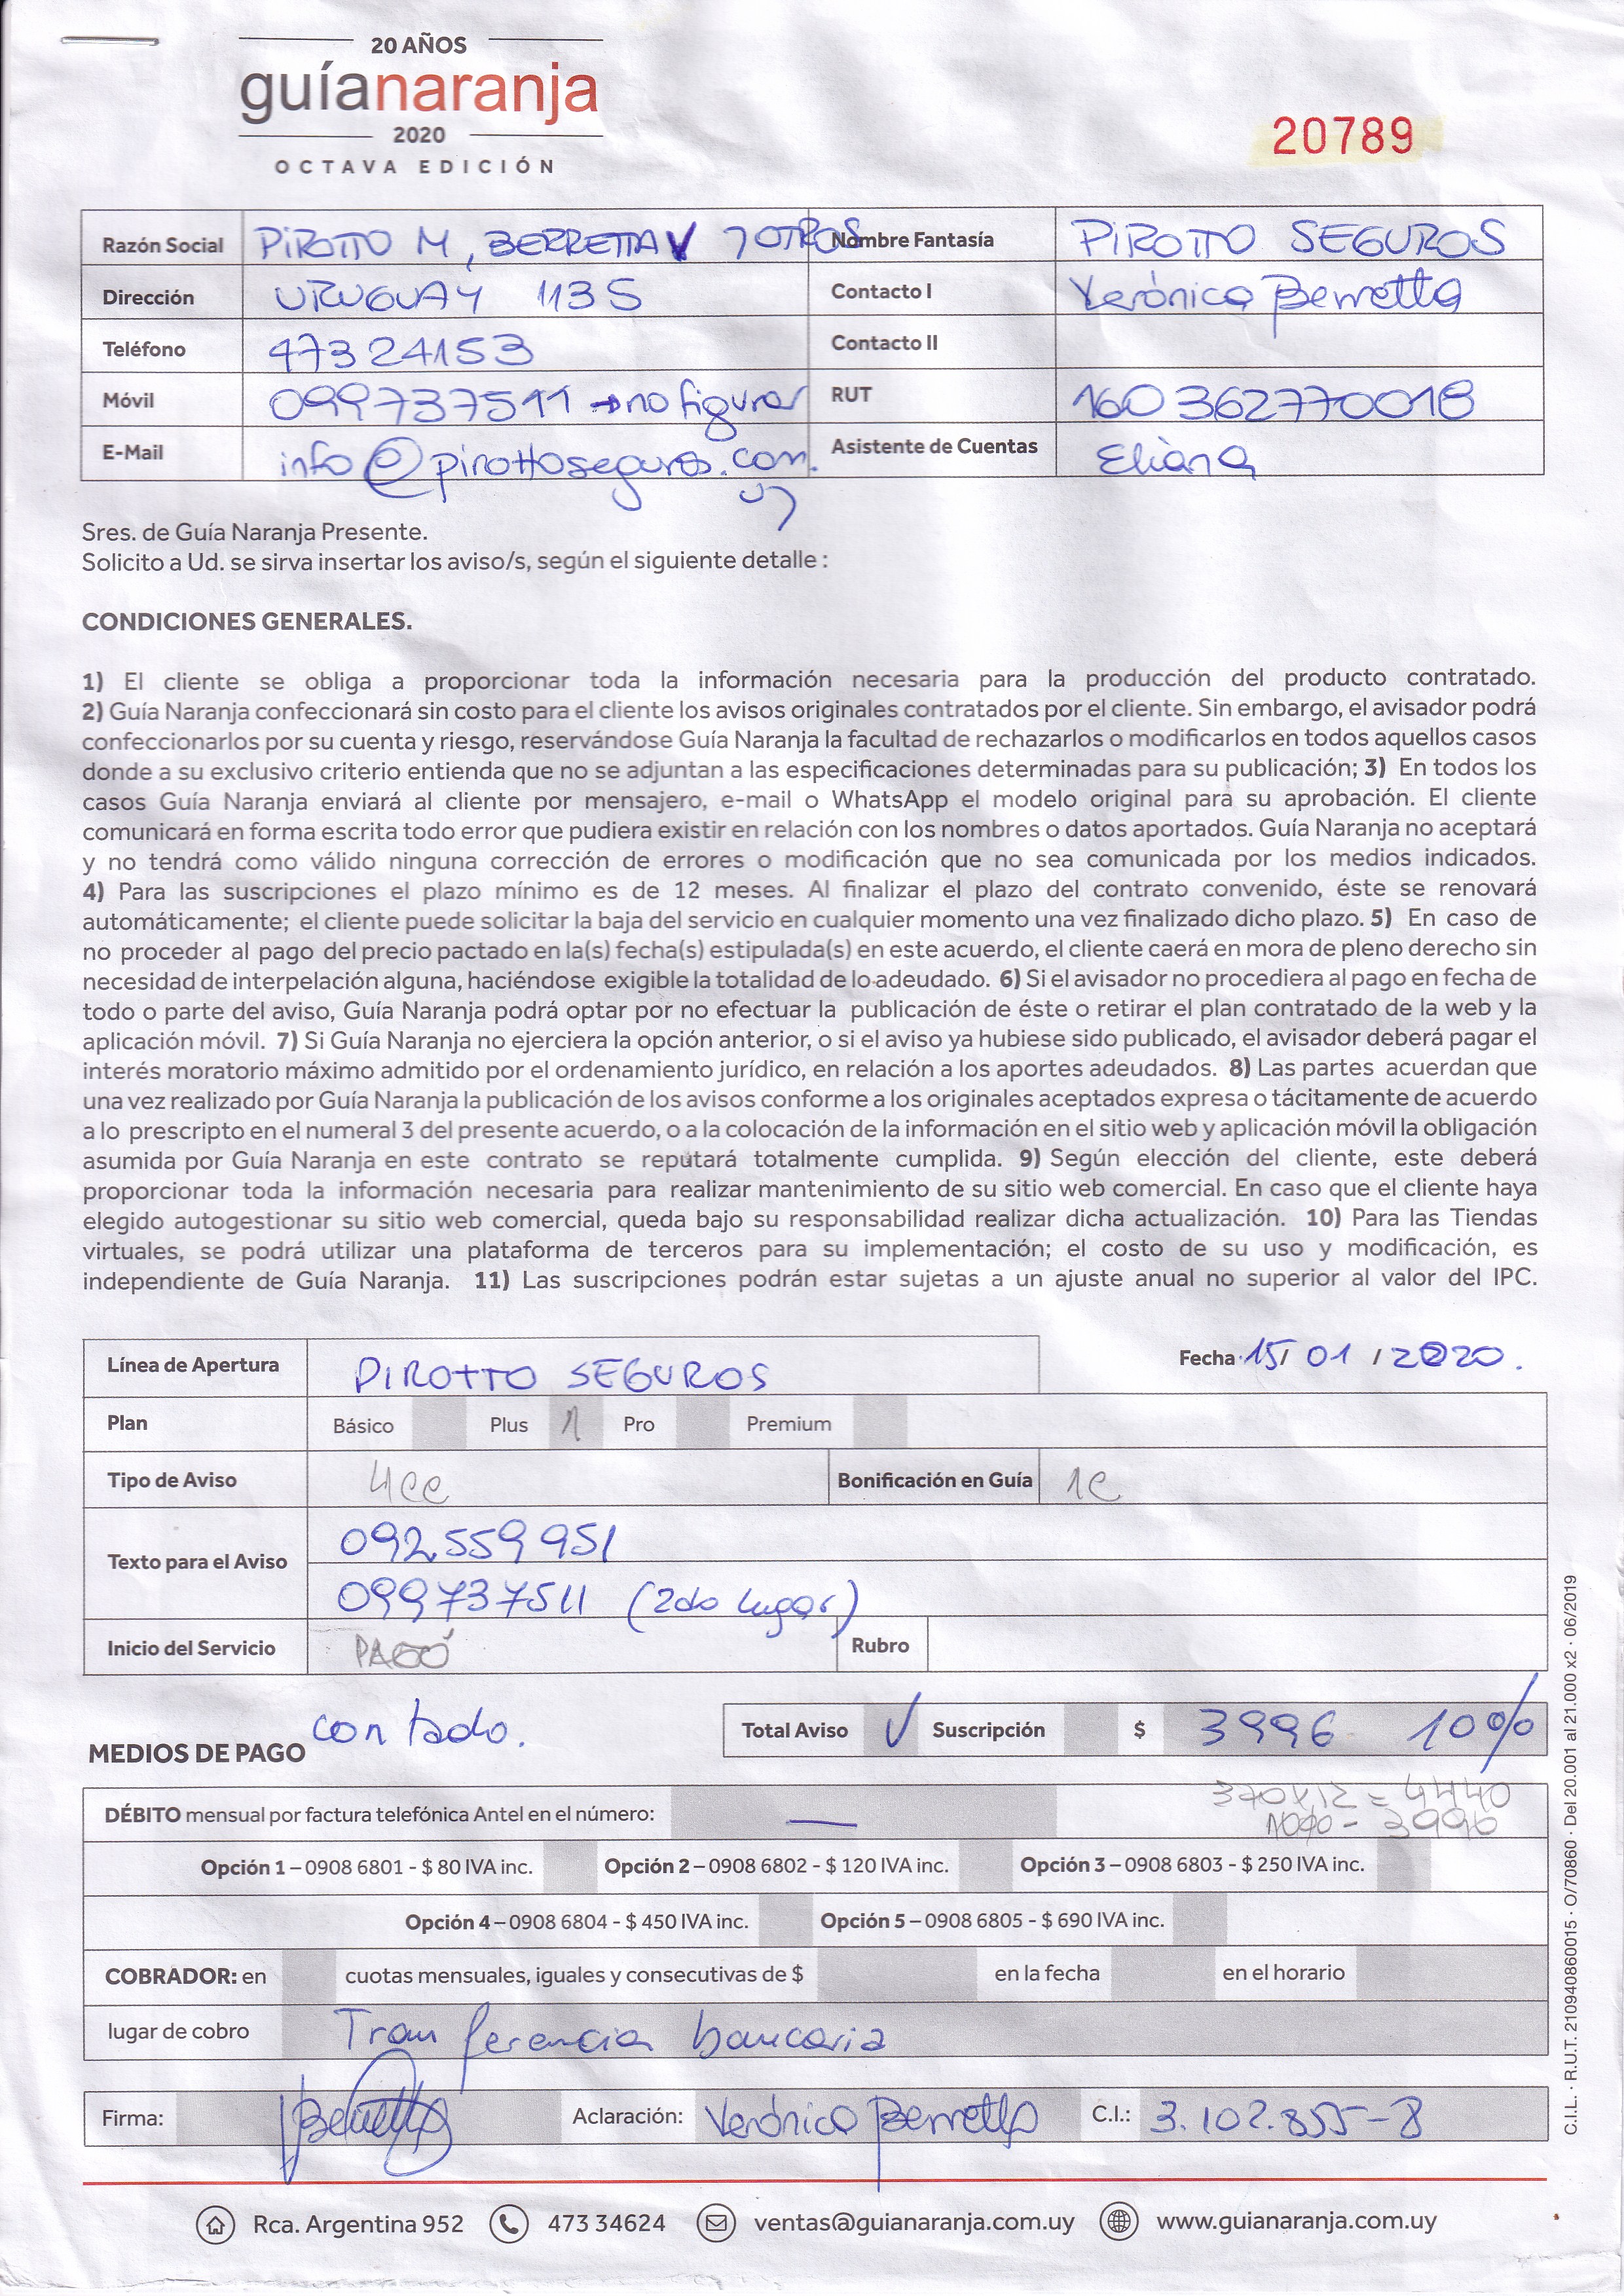 20 AÑOS
guíanaranja
2020
OCTAVA EDICIÓN
20789
Razón Social PIROTTO M, BERRETTA V y OTROS Nombre Fantasía PIROTTO SEGUROS
Dirección URUGUAY 1135 Contacto I Verónica Berretta
Teléfono 47324153 Contacto II
Móvil 099737511 → no figurar RUT 160362770018
E-Mail info@pirottoseguros.com. Asistente de Cuentas Eliana
uy
Sres. de Guía Naranja Presente.
Solicito a Ud. se sirva insertar los aviso/s, según el siguiente detalle :
CONDICIONES GENERALES.
1) El cliente se obliga a proporcionar toda la información necesaria para la producción del producto contratado.
2) Guía Naranja confeccionará sin costo para el cliente los avisos originales contratados por el cliente. Sin embargo, el avisador podrá
confeccionarlos por su cuenta y riesgo, reservándose Guía Naranja la facultad de rechazarlos o modificarlos en todos aquellos casos
donde a su exclusivo criterio entienda que no se adjuntan a las especificaciones determinadas para su publicación; 3) En todos los
casos Guía Naranja enviará al cliente por mensajero, e-mail o WhatsApp el modelo original para su aprobación. El cliente
comunicará en forma escrita todo error que pudiera existir en relación con los nombres o datos aportados. Guía Naranja no aceptará
y no tendrá como válido ninguna corrección de errores o modificación que no sea comunicada por los medios indicados.
4) Para las suscripciones el plazo mínimo es de 12 meses. Al finalizar el plazo del contrato convenido, éste se renovará
automáticamente; el cliente puede solicitar la baja del servicio en cualquier momento una vez finalizado dicho plazo. 5) En caso de
no proceder al pago del precio pactado en la(s) fecha(s) estipulada(s) en este acuerdo, el cliente caerá en mora de pleno derecho sin
necesidad de interpelación alguna, haciéndose exigible la totalidad de lo adeudado. 6) Si el avisador no procediera al pago en fecha de
todo o parte del aviso, Guía Naranja podrá optar por no efectuar la publicación de éste o retirar el plan contratado de la web y la
aplicación móvil. 7) Si Guía Naranja no ejerciera la opción anterior, o si el aviso ya hubiese sido publicado, el avisador deberá pagar el
interés moratorio máximo admitido por el ordenamiento jurídico, en relación a los aportes adeudados. 8) Las partes acuerdan que
una vez realizado por Guía Naranja la publicación de los avisos conforme a los originales aceptados expresa o tácitamente de acuerdo
a lo prescripto en el numeral 3 del presente acuerdo, o a la colocación de la información en el sitio web y aplicación móvil la obligación
asumida por Guía Naranja en este contrato se reputará totalmente cumplida. 9) Según elección del cliente, este deberá
proporcionar toda la información necesaria para realizar mantenimiento de su sitio web comercial. En caso que el cliente haya
elegido autogestionar su sitio web comercial, queda bajo su responsabilidad realizar dicha actualización. 10) Para las Tiendas
virtuales, se podrá utilizar una plataforma de terceros para su implementación; el costo de su uso y modificación, es
independiente de Guía Naranja. 11) Las suscripciones podrán estar sujetas a un ajuste anual no superior al valor del IPC.
Línea de Apertura PIROTTO SEGUROS Fecha 15/ 01 / 2020.
Plan Básico Plus 1 Pro Premium
Tipo de Aviso 4cc Bonificación en Guía 1c
Texto para el Aviso 092559951
099737511 (2do lugar)
Inicio del Servicio PAGÓ Rubro
MEDIOS DE PAGO contado. Total Aviso √ Suscripción $ 3996 10%
DÉBITO mensual por factura telefónica Antel en el número: — 370x12 = 4440
10% - 3996
Opción 1 – 0908 6801 - $ 80 IVA inc. Opción 2 – 0908 6802 - $ 120 IVA inc. Opción 3 – 0908 6803 - $ 250 IVA inc.
Opción 4 – 0908 6804 - $ 450 IVA inc. Opción 5 – 0908 6805 - $ 690 IVA inc.
COBRADOR: en cuotas mensuales, iguales y consecutivas de $ en la fecha en el horario
lugar de cobro Tranferencia bancaria
Firma: Berretta Aclaración: Verónica Berretta C.I.: 3.102.855-8
Rca. Argentina 952 473 34624 ventas@guianaranja.com.uy www.guianaranja.com.uy
C.I.L. · R.U.T. 210940860015 · O/70860 · Del 20.001 al 21.000 x2 · 06/2019